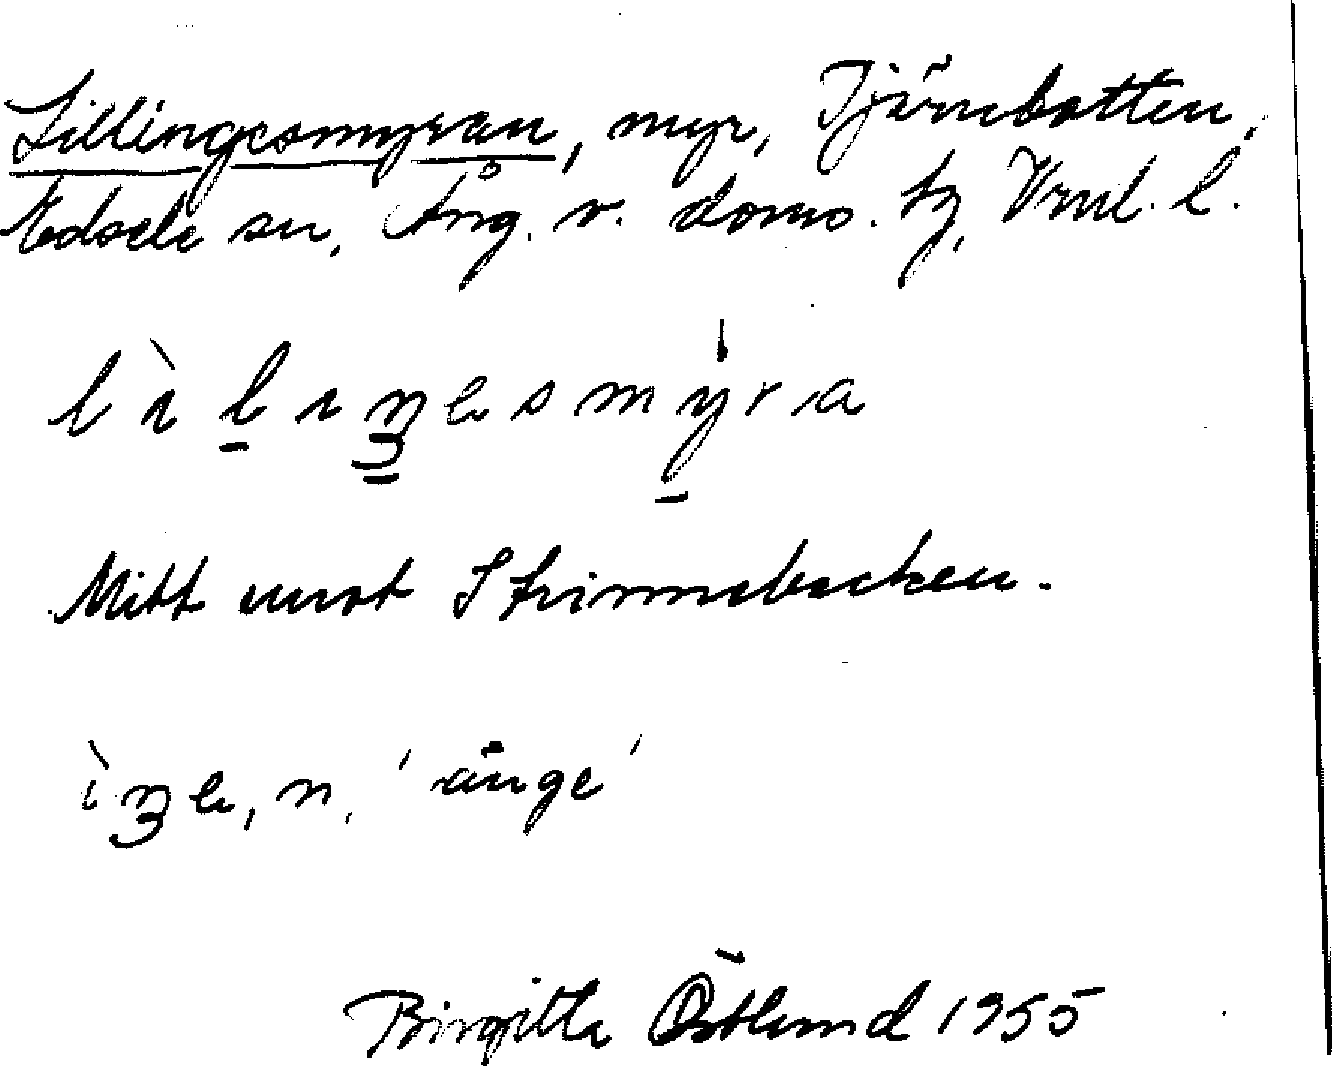 Lillingesmyran, myr, Tjärnbotten,
Edsele sn, Ång. v. doms. tg, Vrnl. l.
lìlıŋesmyra
Mitt mot Strinnebacken.
ìŋe, n. 'änge'
Birgitta Östlund 1955